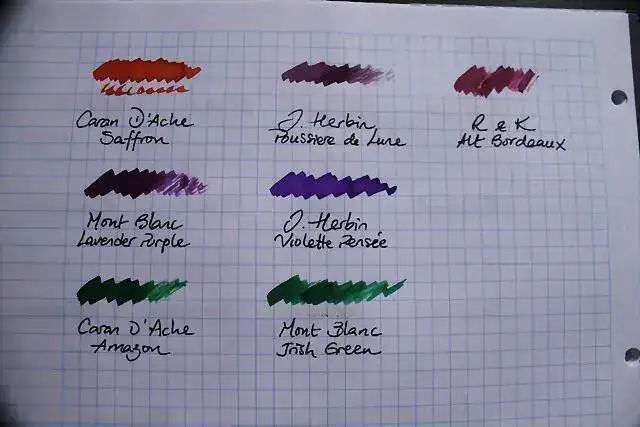 Caran D'Ache
Saffron
J. Herbin
Poussiere de Lune
R & K
Alt Bordeaux
Mont Blanc
Lavender Purple
J. Herbin
Violette Pensée
Caran D'Ache
Amazon
Mont Blanc
Irish Green